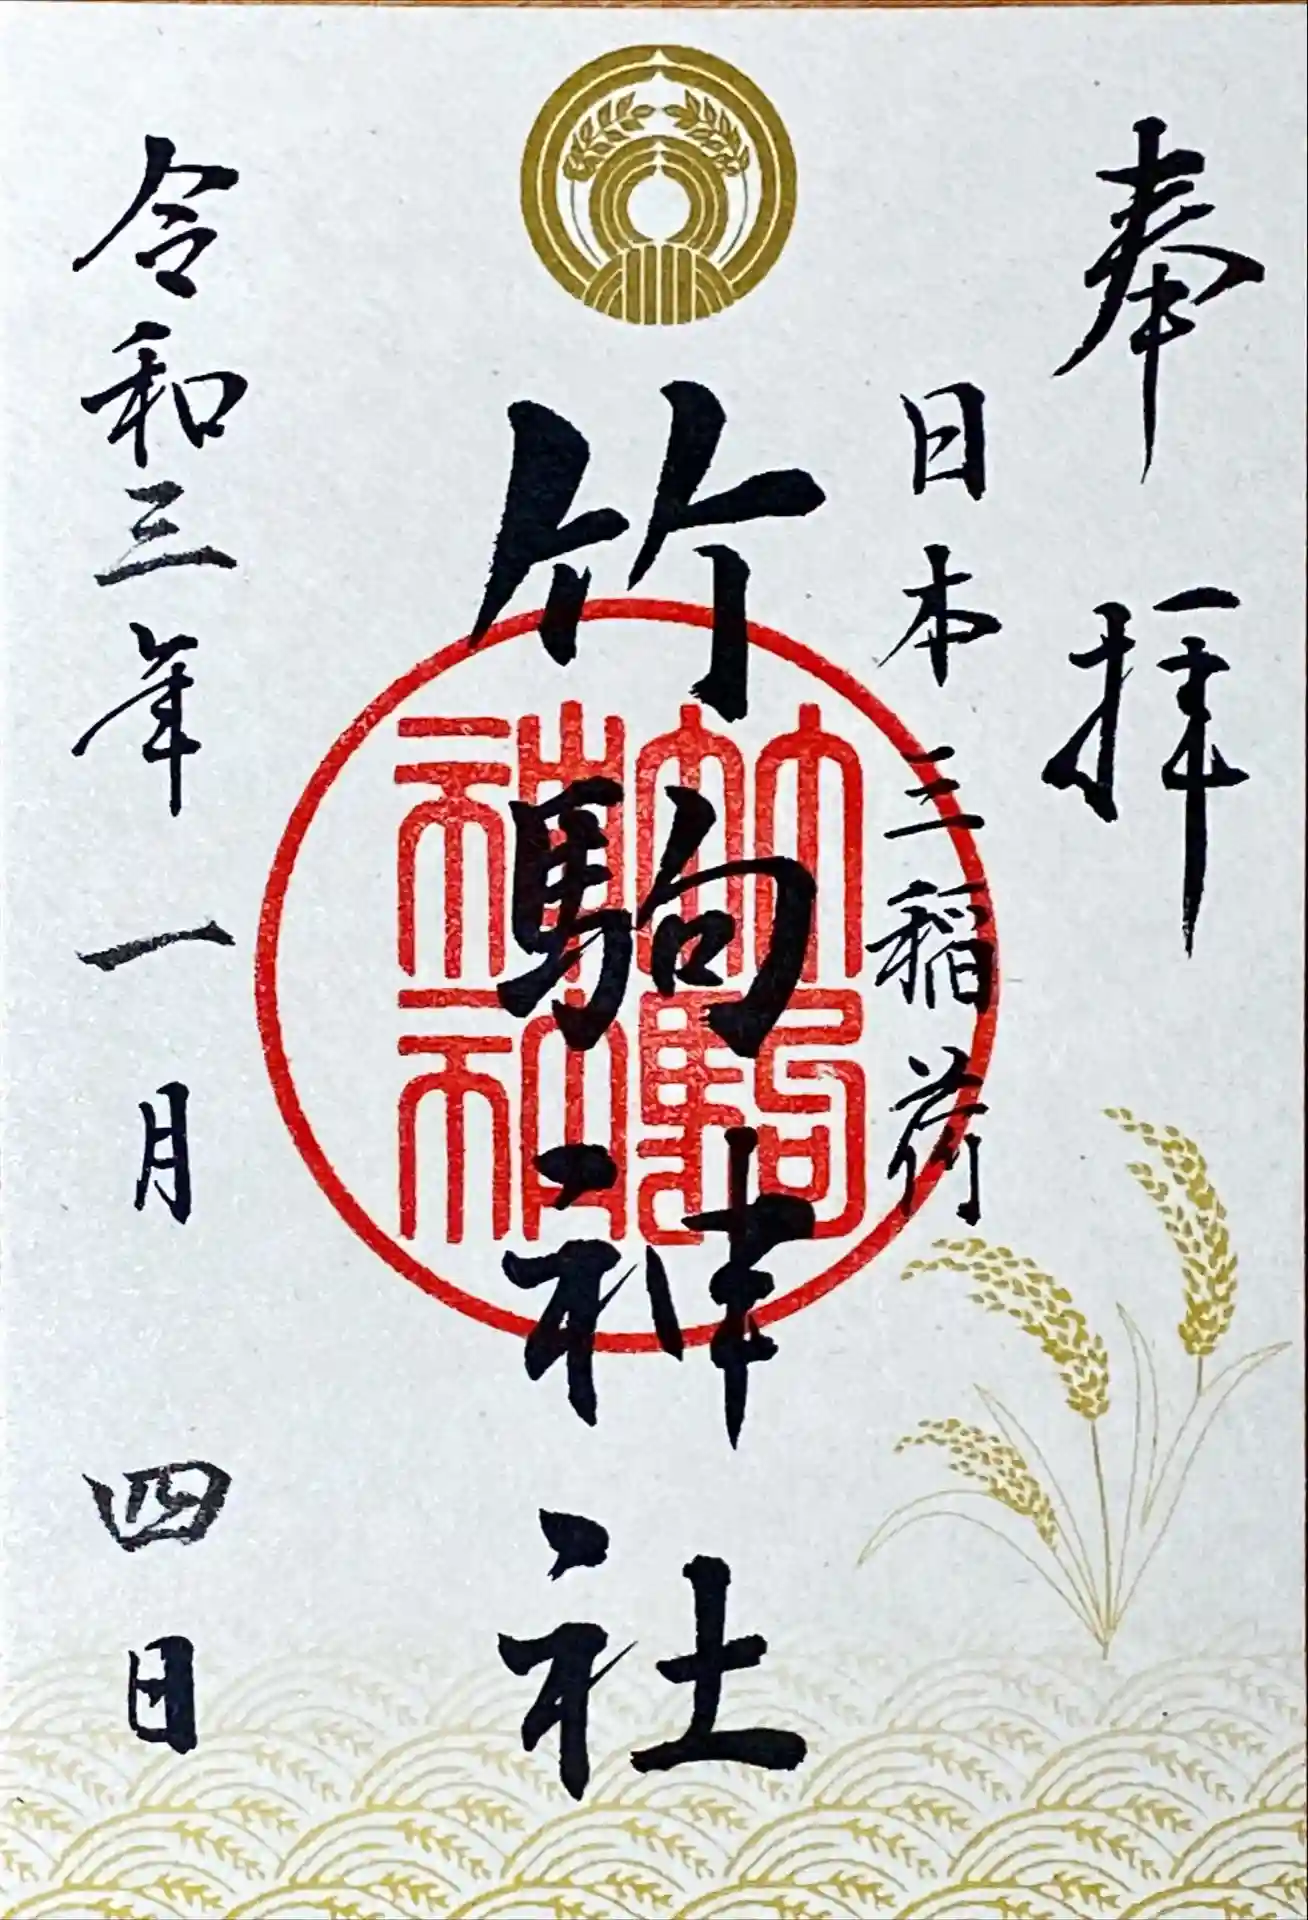 奉拝
日本三稲荷
竹駒神社
竹駒神社
令和三年一月四日